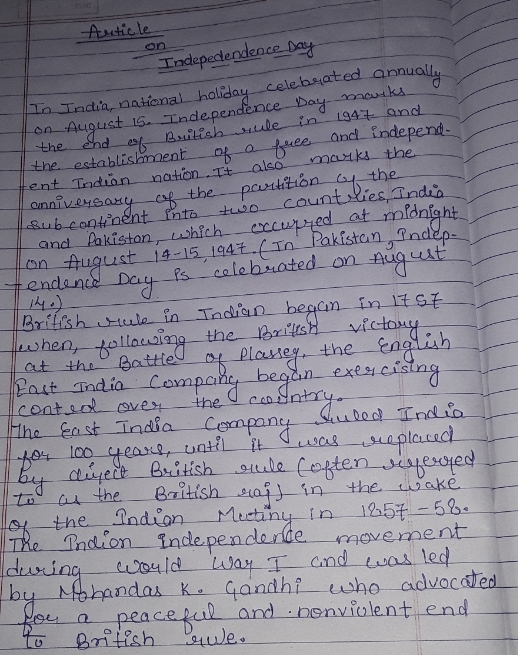 Article
on
Indepedendence Day
In India, national holiday celebrated annually
on August 15. Independence Day marks
the end of British rule in 1947 and
the establishment of a free and independ-
ent Indian nation. It also marks the
anniversary of the partition of the
subcontinent into two countries, India
and Pakistan, which occurred at midnight
on August 14-15, 1947. (In Pakistan, Indep-
endence Day is celebrated on August
14.)
British rule in Indian began in 1757
when, following the British victory
at the Battle of Plassey, the English
East India Company began exercising
control over the country.
The East India Company ruled India
for 100 years, until it was replaced
by direct British rule (often referred
to as the British raj) in the wake
of the Indian Meeting in 1857-58.
The Indian independence movement
during would War I and was led
by Mohandas K. Gandhi who advocated
for a peaceful and nonviolent end
to British rule.